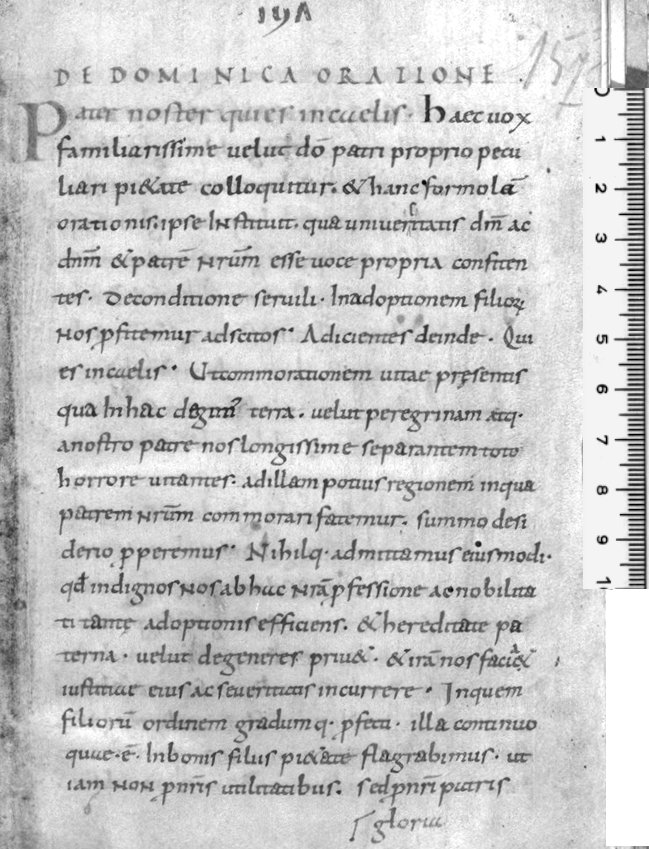 DE DOMINICA ORATIONE
Pater noster qui es in caelis. haec uox
familiarissime uelut dō patri proprio pecu
liari pi&ate colloquitur. & hanc formolā
orationis. ipse Instituit. qua uniuersitatis dm̄ ac
dnm̄ & patrē nrūm esse uoce propria confiten
tes. De conditione seruili. In adoptionem filioꝝ
nos ꝓfitemur adscitos. Adicientes deinde. Qui
es in caelis. Ut commorationem uitae pręsentis
qua In hac degim̄ terra. uelut peregrinam atq.
a nostro patre nos longissime separantem toto
horrore uitantes. ad illam potius regionem in qua
patrem nrūm commorari fatemur. summo desi
derio ꝓperemus. Nihilq. admittamus eiusmodi.
qđ indignos nos ab hac nrā ꝓfessione ac nobilita
ti tantę adoptionis efficiens. & hereditate pa
terna. uelut degeneres priu&. & irā nos faciat &
iustitiae eius ac seueritatis incurrere. In quem
filiorū ordinem gradumq. ꝓfecti. illa continuo
quae. ē. In bonis filiis pi&ate flagrabimus. ut
iam non ꝓ nrīs utilitatibus. sed ꝓ nrī patris
gloria